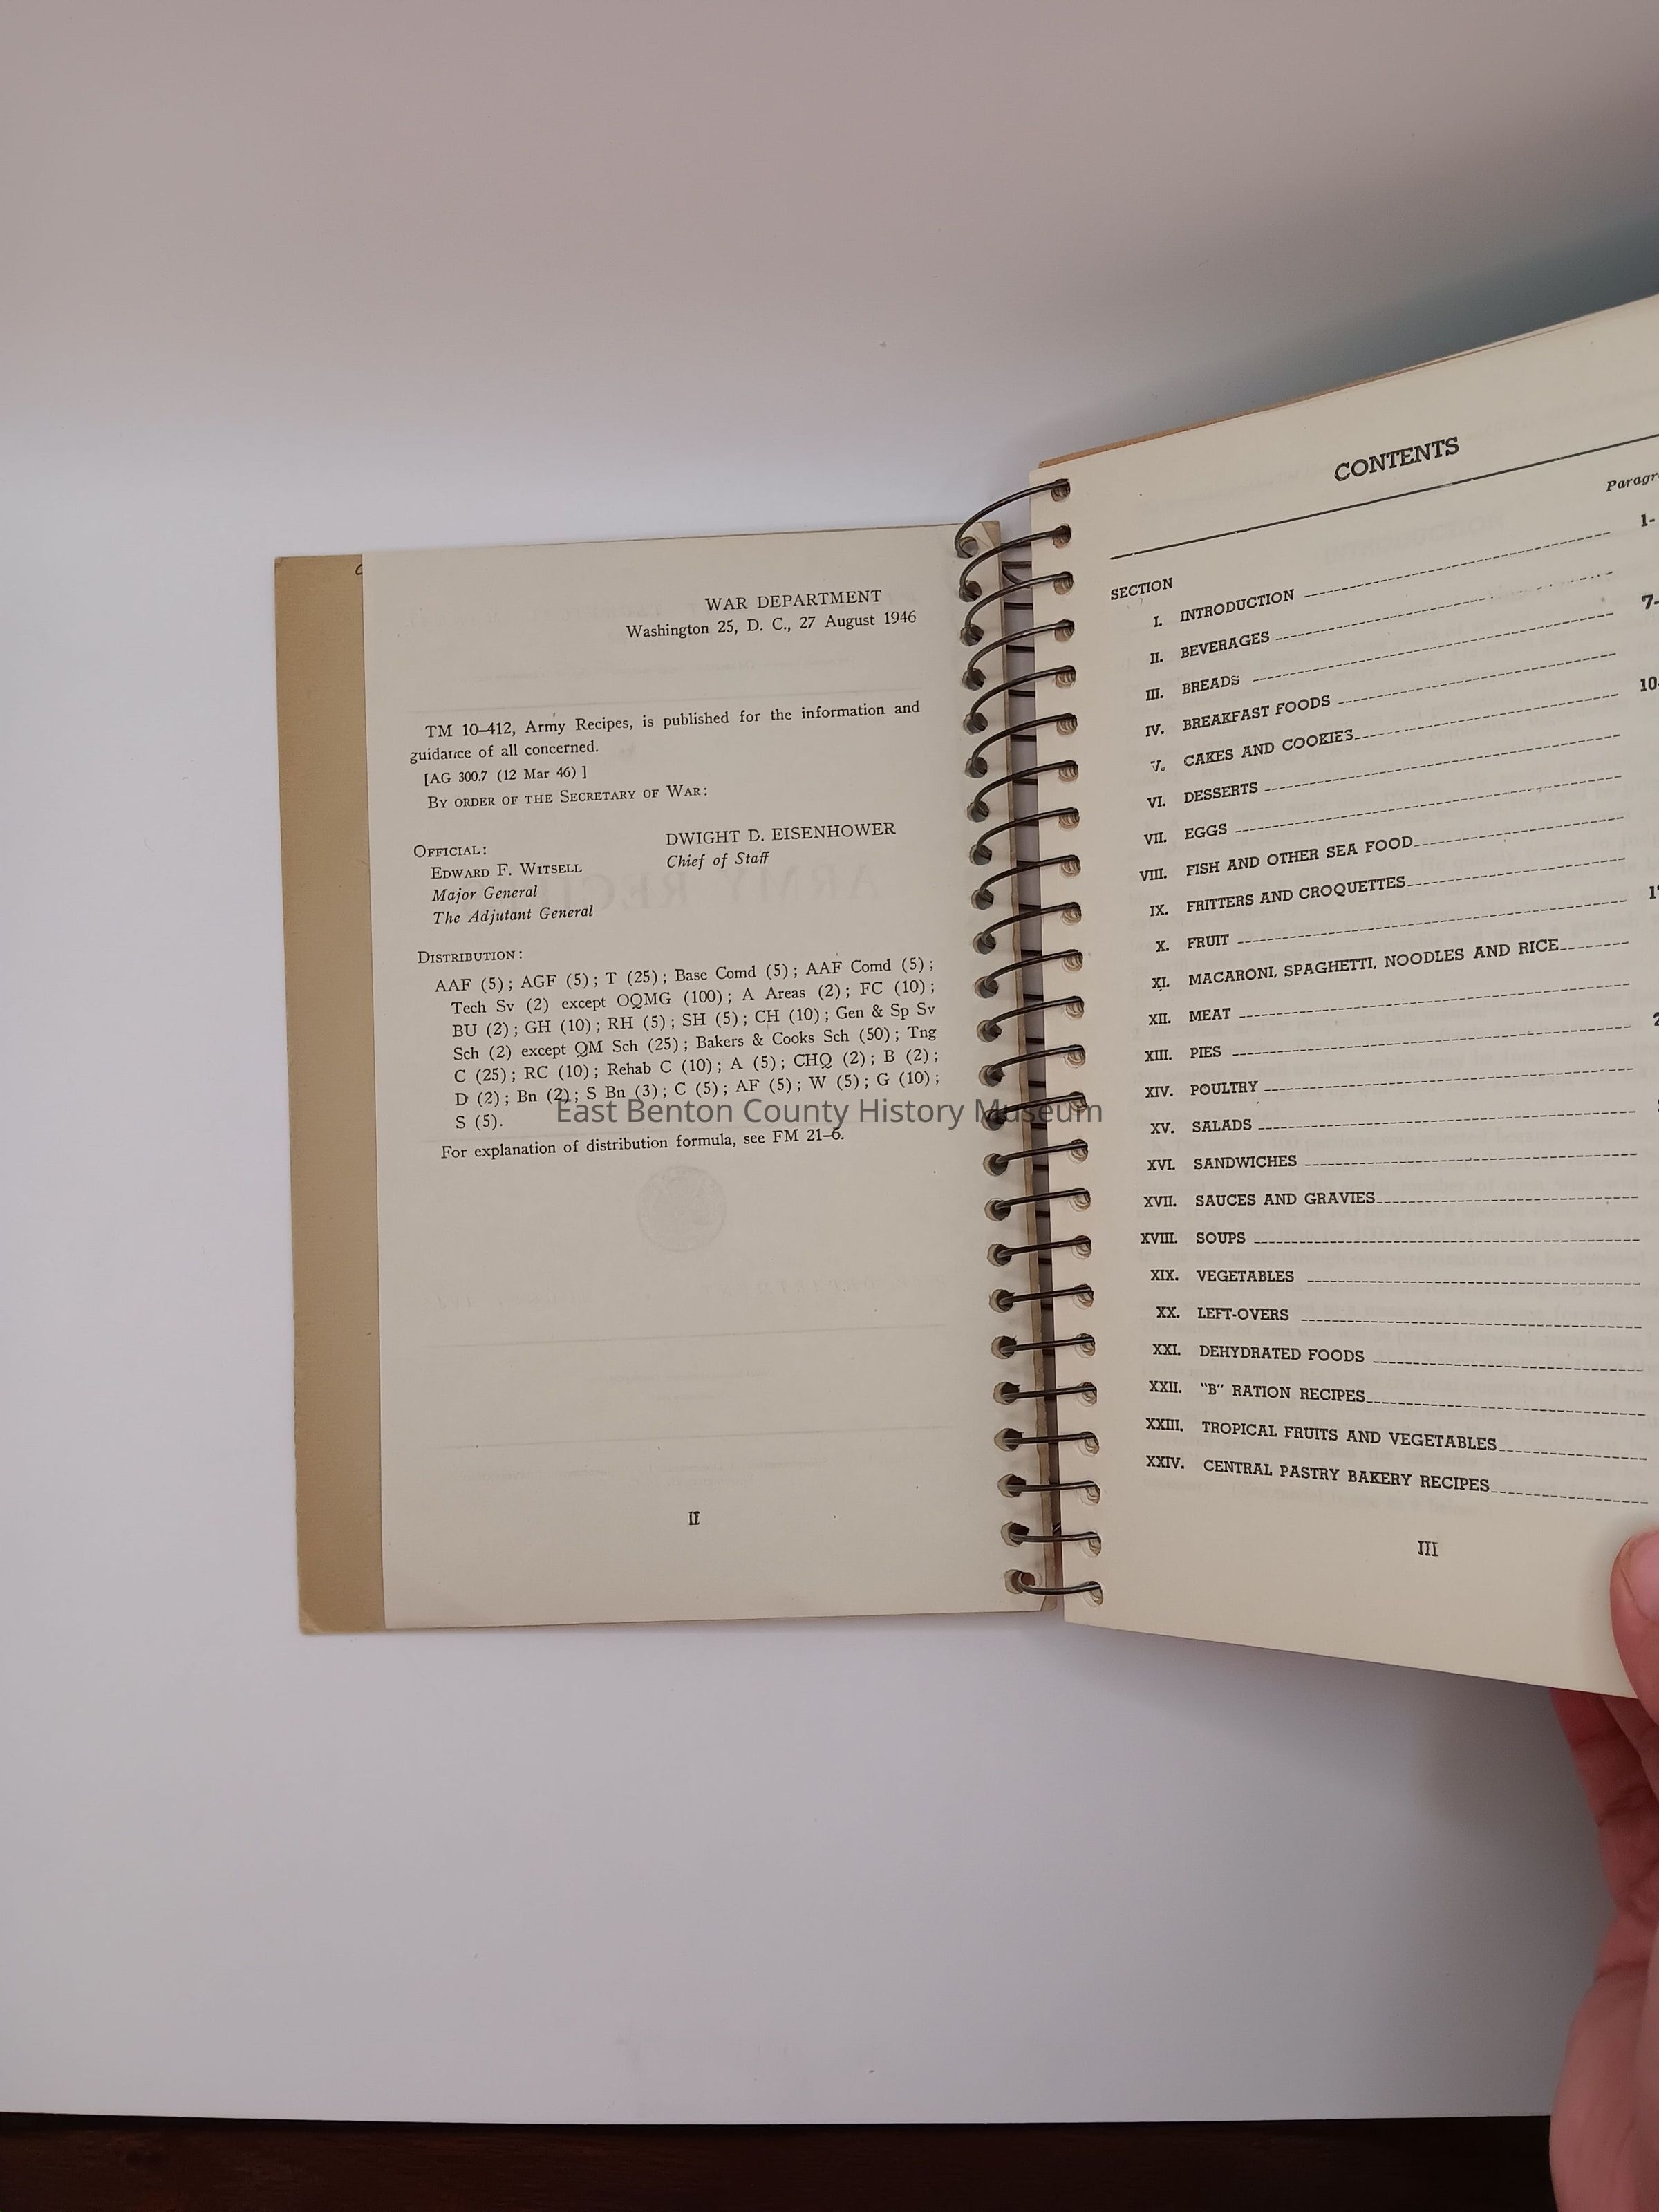 WAR DEPARTMENT
Washington 25, D. C., 27 August 1946
TM 10–412, Army Recipes, is published for the information and
guidance of all concerned.
[AG 300.7 (12 Mar 46) ]
By order of the Secretary of War:
DWIGHT D. EISENHOWER
Chief of Staff
Official:
Edward F. Witsell
Major General
The Adjutant General
Distribution:
AAF (5); AGF (5); T (25); Base Comd (5); AAF Comd (5);
Tech Sv (2) except OQMG (100); A Areas (2); FC (10);
BU (2); GH (10); RH (5); SH (5); CH (10); Gen & Sp Sv
Sch (2) except QM Sch (25); Bakers & Cooks Sch (50); Tng
C (25); RC (10); Rehab C (10); A (5); CHQ (2); B (2);
D (2); Bn (2); S Bn (3); C (5); AF (5); W (5); G (10);
S (5).
For explanation of distribution formula, see FM 21–6.
II
East Benton County History Museum
CONTENTS
SECTION
I. INTRODUCTION 1-
II. BEVERAGES
III. BREADS 7-
IV. BREAKFAST FOODS
V. CAKES AND COOKIES 10-
VI. DESSERTS
VII. EGGS
VIII. FISH AND OTHER SEA FOOD
IX. FRITTERS AND CROQUETTES
X. FRUIT
XI. MACARONI, SPAGHETTI, NOODLES AND RICE
XII. MEAT
XIII. PIES
XIV. POULTRY
XV. SALADS
XVI. SANDWICHES
XVII. SAUCES AND GRAVIES
XVIII. SOUPS
XIX. VEGETABLES
XX. LEFT-OVERS
XXI. DEHYDRATED FOODS
XXII. "B" RATION RECIPES
XXIII. TROPICAL FRUITS AND VEGETABLES
XXIV. CENTRAL PASTRY BAKERY RECIPES
III